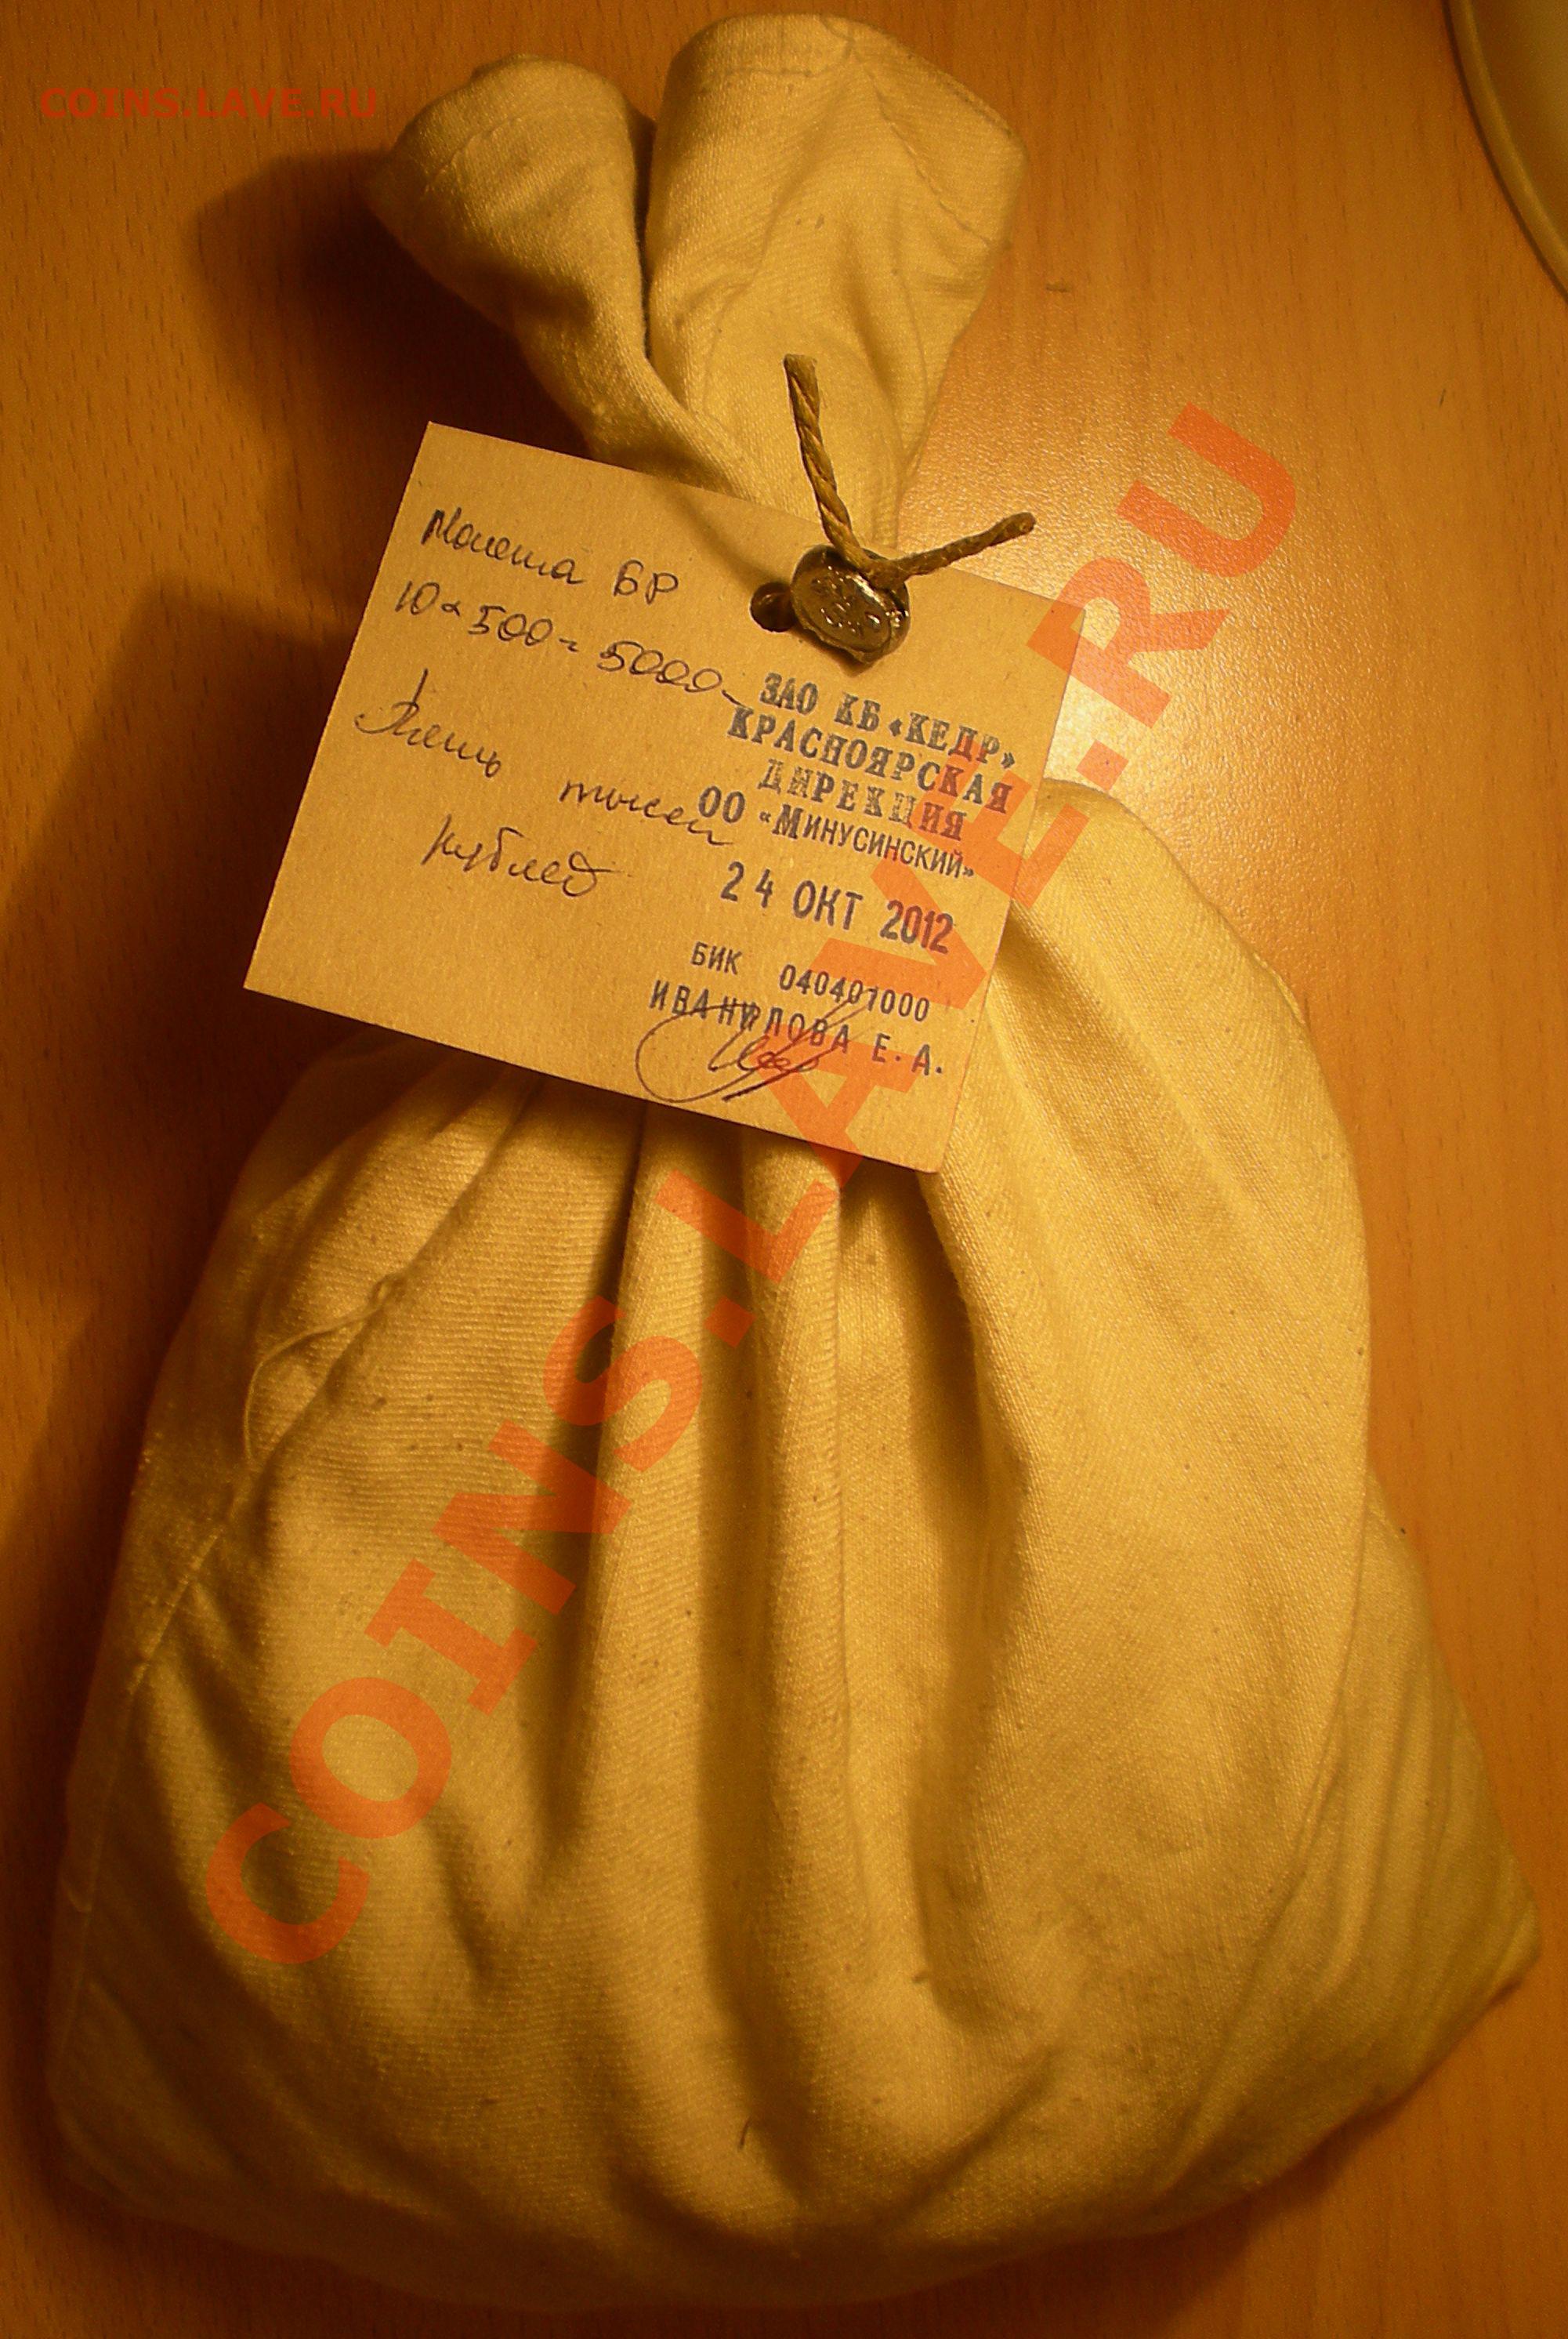 COINS.LAVE.RU
Монета БР
10 x 500 = 5000-
Пять тысяч
рублей
ЗАО КБ «КЕДР»
КРАСНОЯРСКАЯ
ДИРЕКЦИЯ
ОО «МИНУСИНСКИЙ»
24 ОКТ 2012
БИК 040401000
ИВАНИЛОВА Е. А.
COINS.LAVE.RU